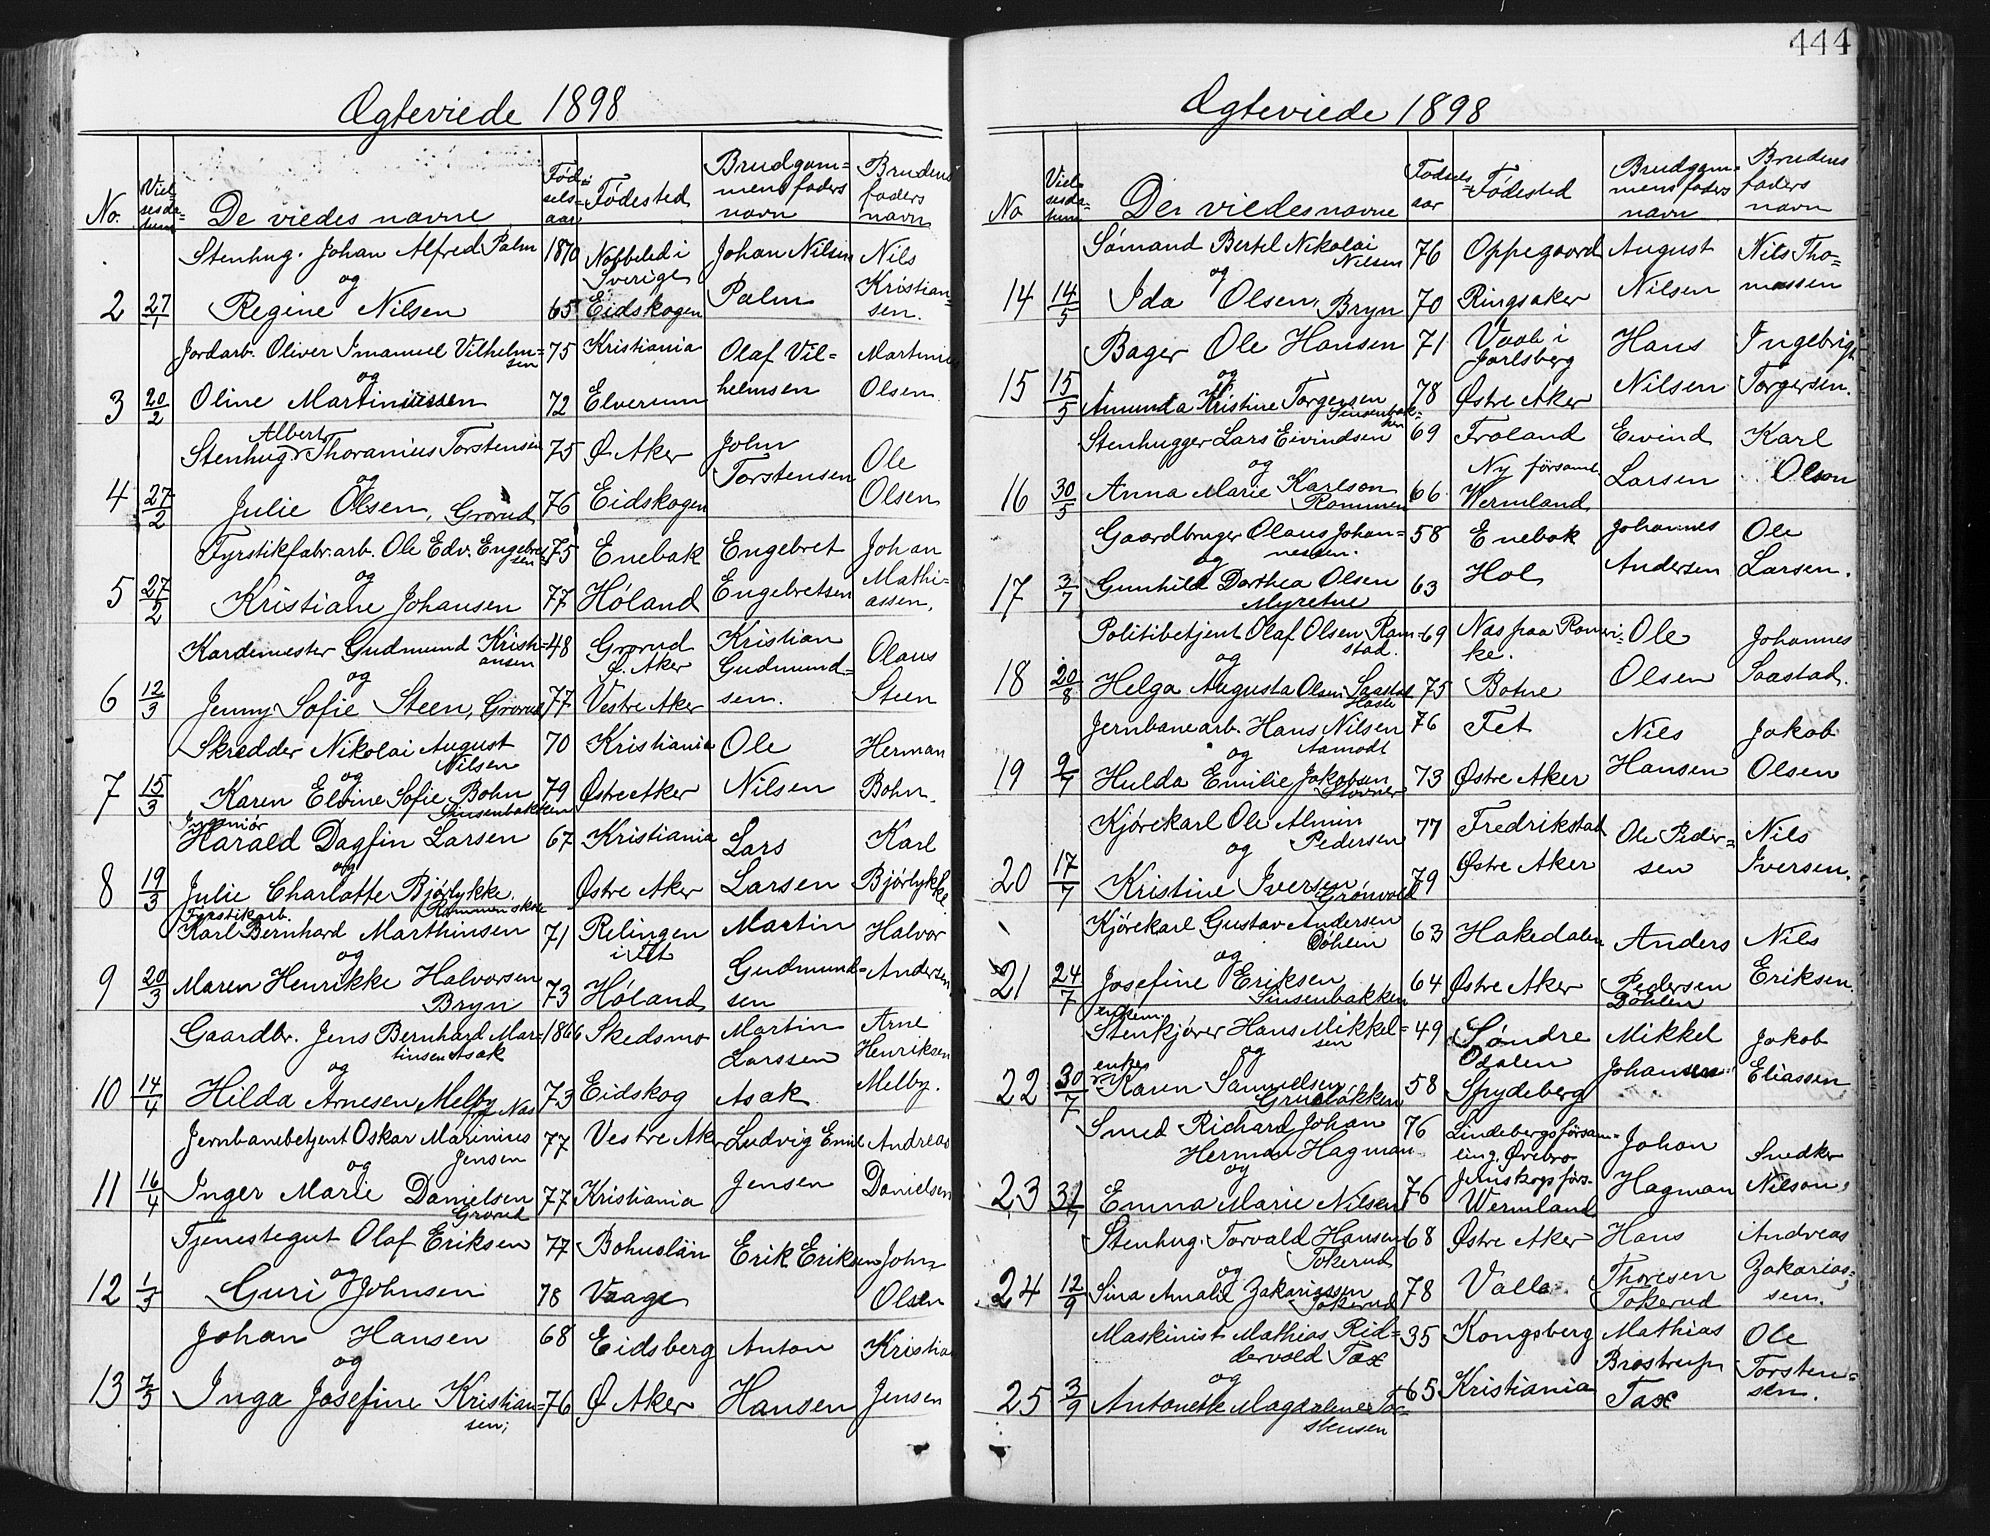 Ægteviede 1898
No. Vielsesdatum De viedes navne Fødselsaar Fødested Brudgommens faders navn Brudens faders navn
Stenhug. Johan Alfred Palm 1870 Nobbeled i Sverige Johan Nilsen Nils
og
2 27/1 Regine Nilsen 65 Eidskogen Palm Kristiansen.
Jordarb. Oliver Imanuel Vilhelmsen 75 Kristiania Olaf Vil- Martinius
og
3 20/2 Oline Martiniussen 72 Elverum helmsen Olsen
Stenhug. Albert Thoranius Torstensen 75 Ø Aker John Ole
og
4 27/2 Julie Olsen, Grorud 76 Eidskogen Torstensen Olsen
Fyrstikfabr.arb. Ole Edv. Engebretsen 75 Enebak Engebret Johan
og
5 27/2 Kristiane Johansen 77 Høland Engebretsen Mathiassen.
Kardemester Gudmund Kristiansen 48 Grorud Ø. Aker Kristian Olaus
og
6 12/3 Jenny Sofie Steen, Grorud 77 Vestre Aker Gudmundsen. Steen
Skredder Nikolai August Nilsen 70 Kristiania Ole Herman
og
7 15/3 Karen Elvine Sofie Bohn Sinsenbakken 79 Østre Aker Nilsen Bohn.
Ingeniør
Harald Dagfin Larsen 67 Kristiania Lars Karl
og
8 19/3 Julie Charlotte Bjørlykke. Rommen skole Østre Aker Larsen Bjørlykke.
Fyrstikarb.
Karl Bernhard Marthinsen 71 Relingen i Fet Martin Halvor
og
9 20/3 Maren Henrikke Halvorsen Bryn 73 Høland Gudmundsen Andersen
Gaardbr. Jens Bernhard Martinsen Asak 1866 Skedsmo Martin Arne
og
10 14/4 Hilda Arnesen Melby Nas 73 Eidskog Larssen Asak Henriksen Melby.
Jernbanebetjent Oskar Marinius Jensen 77 Vestre Aker Ludvig Emil Andreas
og
11 16/4 Inger Marie Danielsen Grorud 77 Kristiania Jensen Danielsen
Tjenestegut Olaf Eriksen 77 Bohuslän Erik Eriksen John
og
12 1/3 Guri Johnsen 78 Vaage Olsen
Johan Hansen 68 Eidsberg Anton Kristian
og
13 7/5 Inga Josefine Kristiansen; 76 Ø Aker Hansen Jensen
444
Ægteviede 1898
No Vielsesdatum De viedes navne Fødselsaar Fødested Brudgommens faders navn Brudens faders navn
Sømand Bertel Nikolai Nilsen 76 Oppegaard August Nils Tho-
og
14 14/5 Ida Olsen, Bryn 70 Ringsaker Nilsen massen
Bager Ole Hansen 71 Vaale i Jarlsberg Hans Ingebrigt
og
15 15/5 Amunda Kristine Torgersen Sinsenbakken 78 Østre Aker Nilsen Torgersen.
Stenhugger Lars Eivindsen 69 Froland Eivind Karl
og
16 30/5 Anna Marie Karlson Rommen 66 Ny församl. Wermland Larsen Olson
Gaardbruger Olaus Johannessen. 58 Enebak Johannes Ole
og
17 3/7 Gunhild Dorthea Olsen Myretue 63 Hol Andersen Larsen.
Politibetjent Olaf Olsen Ramstad. 69 Nas paa Romerike. Ole Johannes
og
18 20/8 Helga Augusta Olsen Saastad Hasle 75 Botne Olsen Saastad.
Jernbanearb. Hans Nilsen Aamodt 76 Fet Nils Jakob
og
19 9/7 Hulda Emilie Jakobsen Stovner 73 Østre Aker Hansen Olsen
Kjørekarl Ole Almin Pedersen 77 Fredrikstad Ole Peder- Nils
og
20 17/7 Kristine Iversen Grønvold 79 Østre Aker sen Iversen.
Kjørekarl Gustav Andersen Döhlen 63 Hakedalen Anders Nils
og
21 24/7 Josefine Eriksen Sinsenbakken 64 Østre Aker Pedersen Döhlen Eriksen.
enkem.
Stenkjører Hans Mikkelsen 49 Søndre Odalen Mikkel Jakob
og
22 30/7 enke Karen Samuelsen Grubløkken 58 Spydeberg Johansen Eliassen
Smed Richard Johan Herman Hagman 76 Lindebergsförsamling, Örebro Johan Snedker
og
23 31/7 Emma Marie Nilsen 76 Wermland Hagman Nilson.
Stenhug. Torvald Hansen Tokerud 68 Østre Aker Hans Andreas
og
24 12/9 Sina Amalie Zakariassen Tokerud 78 Valle Thoresen Tokerud Zakariassen.
Maskinist Mathias Riddervold Tax 35 Kongsberg Mathias Ole
og
25 3/9 Antonette Magdalene Torstensen 65 Kristiania Brostrup Tax Torstensen.